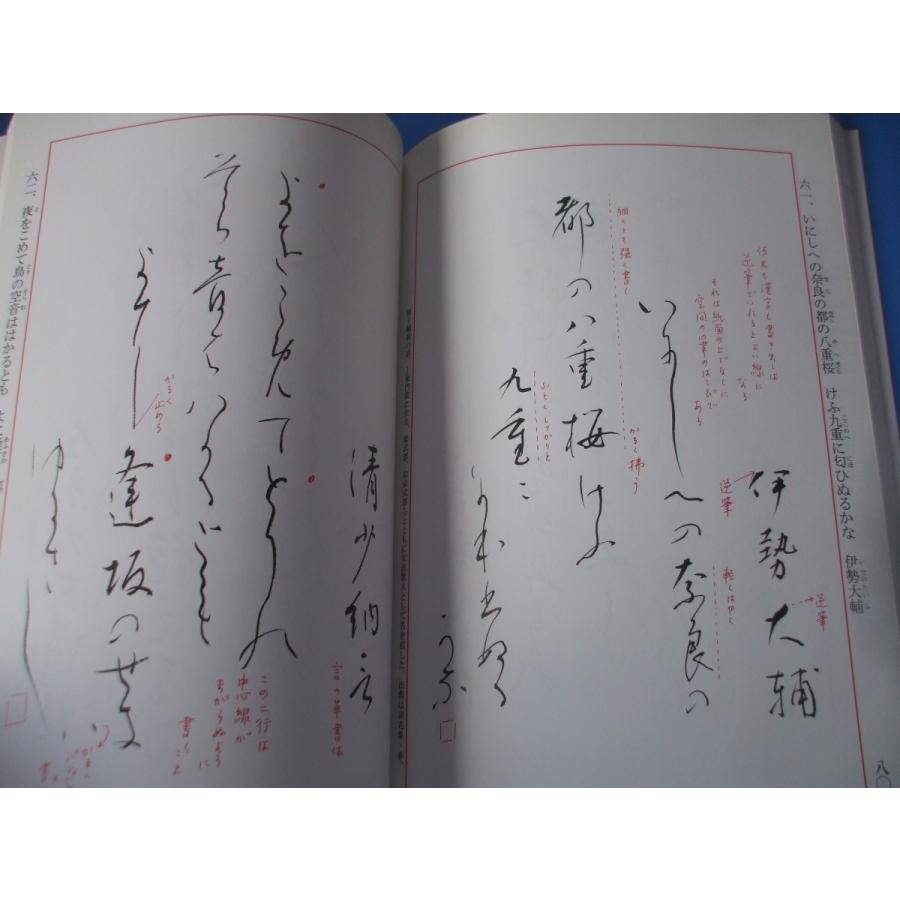 六一、いにしへの奈良の都の八重桜 けふ九重に匂ひぬるかな 伊勢大輔
八〇
伊勢大輔
逆筆
逆筆
いにしへの奈良の
軽くはやく
仮名も漢字も書き出しは
逆筆でいれるとよい線に
なる
それは紙面の上でなしに
空間の筆のはこびで
ある
都の八重桜けふ
細くとも強く書く
かるく払う
九重に
ふとく、しっかりと
にほひぬる
かな
清少納言
言の草書体
よをこめてとりの
この二行は
中心線が
まがらぬように
書くこと
そら音ははかるとも
よにし
かるく
止める
逢坂のせきは
ゆるさし
六二、夜をこめて鳥の空音ははかるとも